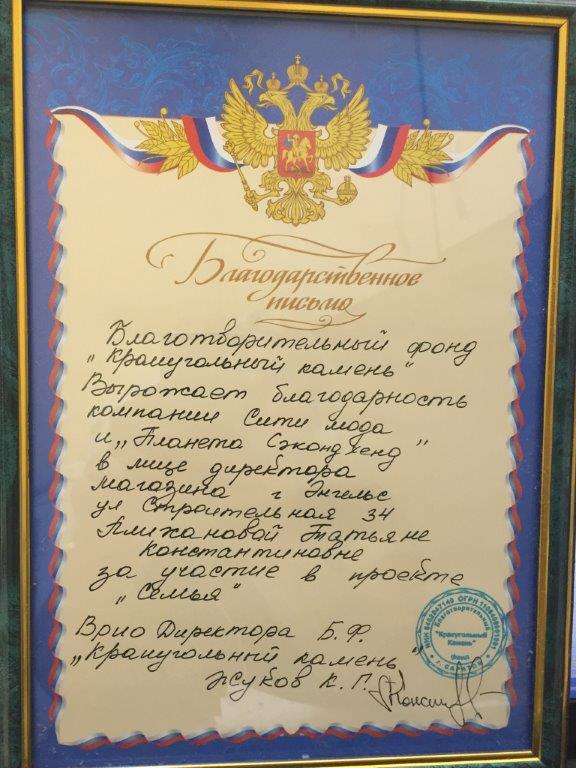 Благодарственное
письмо
Благотворительный фонд
„Краеугольный камень"
Выражает благодарность
компании Сити мода
и „Планета Сэкондхенд"
в лице директора
магазина г Энгельс
ул Строительная 34
Алихановой Татьяне
константиновне
за участие в проекте
„Семья"
Врио Директора Б.Ф.
„Краеугольный камень"
Жуков К.Г.
Благотворительный
"Краеугольный
Камень"
фонд
г. САРАТОВ